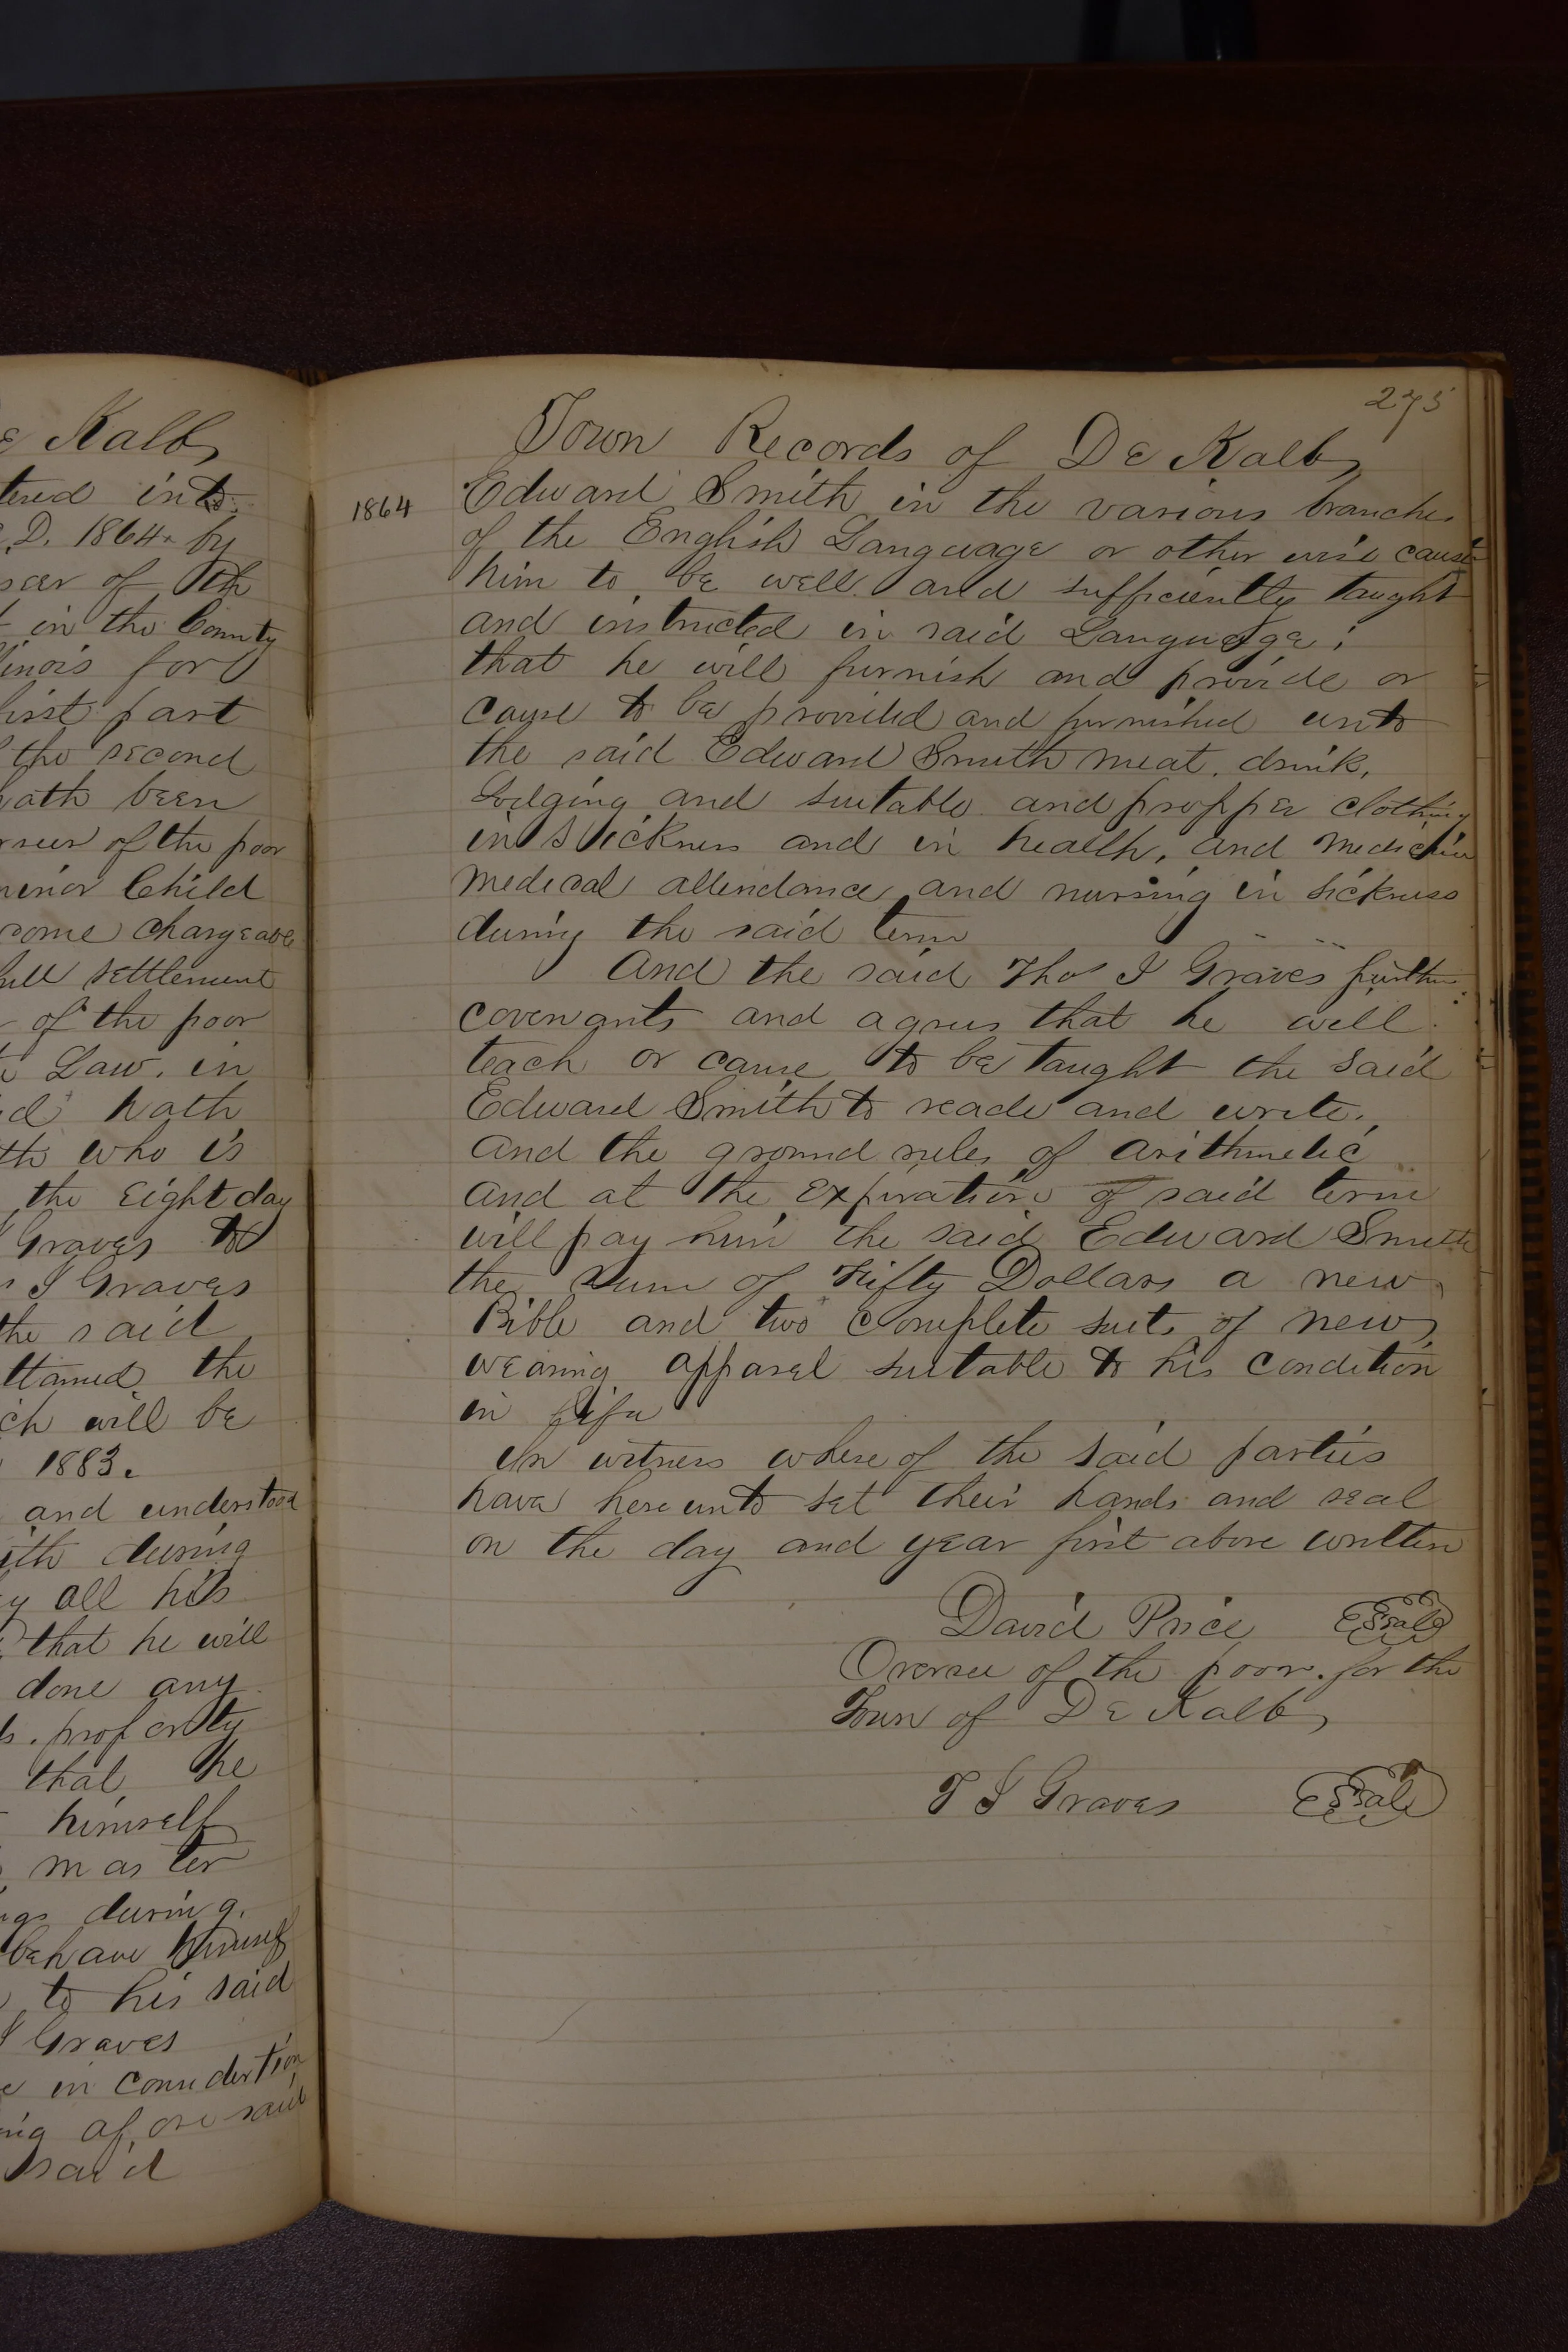 Kalb
tered into
D. 1864. by
seer of the
in the County
inois for
first part
the second
hath been
rseer of the poor
minor Child
come chargeable
full settlement
of the poor
Law. in
hath
th who is
the Eight day
Graves to
I Graves
the said
ttained the
ich will be
1883.
and understood
ith during
y all his
that he will
done any
property
that he
himself
master
during
behave himself
to his said
I Graves
in considertion
ing afore said
said
275
Town Records of De Kalb
1864
Edward Smith in the various branches
of the English Language or other wise cause
him to be well and sufficiently taught
and instructed in said Language;
that he will furnish and provide or
cause to be provided and furnished unto
the said Edward Smith meat. drink,
Lodging and suitable and propper clothing
in Sickness and in health, and Medicine
medical attendance and nursing in sickness
during the said term
And the said Thos I Graves further
covenants and agrees that he will
teach or cause to be taught the said
Edward Smith to reade and write,
and the ground rules of arithmetic
and at the expiration of said term
will pay him the said Edward Smith
the Sum of Fifty Dollars a new
Bible and two complete suits of new
wearing apparel suitable to his condition
in Life
In witness where of the said parties
have here unto set their hands and seal
on the day and year first above written
David Price Seal
Oversee of the poor. for the
Town of De Kalb
T I Graves Seal